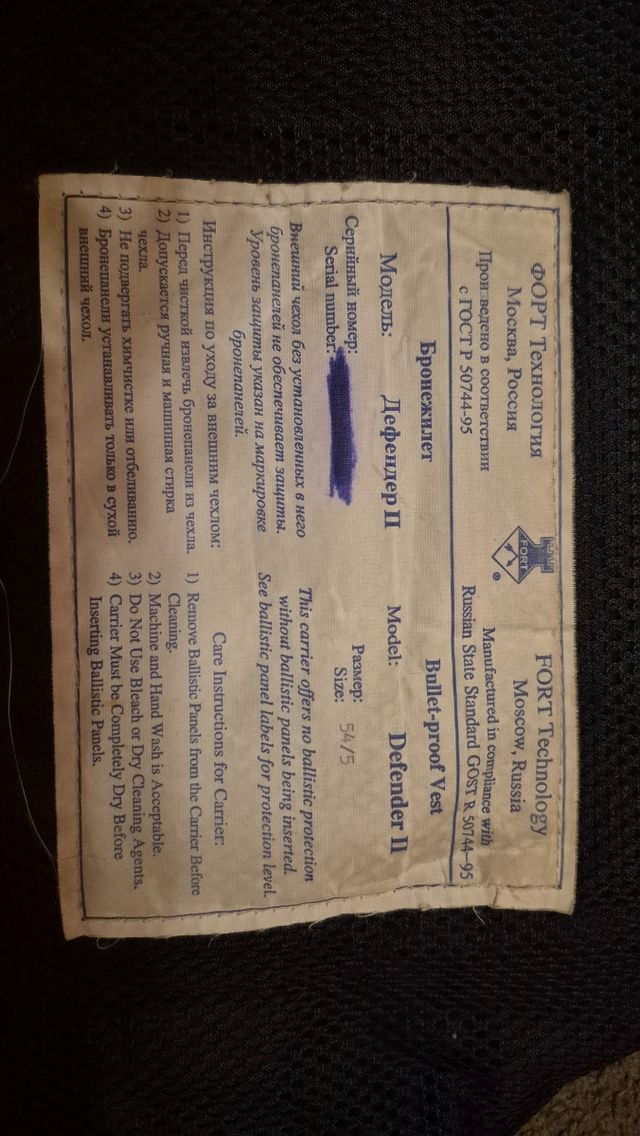 ФОРТ Технология
Москва, Россия
Произведено в соответствии
с ГОСТ Р 50744-95
FORT
®
FORT Technology
Moscow, Russia
Manufactured in compliance with
Russian State Standard GOST R 50744-95
Бронежилет
Bullet-proof Vest
Модель: Дефендер II
Model: Defender II
Серийный номер:
Serial number:
Размер:
Size: 54/5
Внешний чехол без установленных в него
бронепанелей не обеспечивает защиты.
Уровень защиты указан на маркировке
бронепанелей.
This carrier offers no ballistic protection
without ballistic panels being inserted.
See ballistic panel labels for protection level.
Инструкция по уходу за внешним чехлом:
1) Перед чисткой извлечь бронепанели из чехла.
2) Допускается ручная и машинная стирка
чехла.
3) Не подвергать химчистке или отбеливанию.
4) Бронепанели устанавливать только в сухой
внешний чехол.
Care Instructions for Carrier:
1) Remove Ballistic Panels from the Carrier Before
Cleaning.
2) Machine and Hand Wash is Acceptable.
3) Do Not Use Bleach or Dry Cleaning Agents.
4) Carrier Must be Completely Dry Before
Inserting Ballistic Panels.